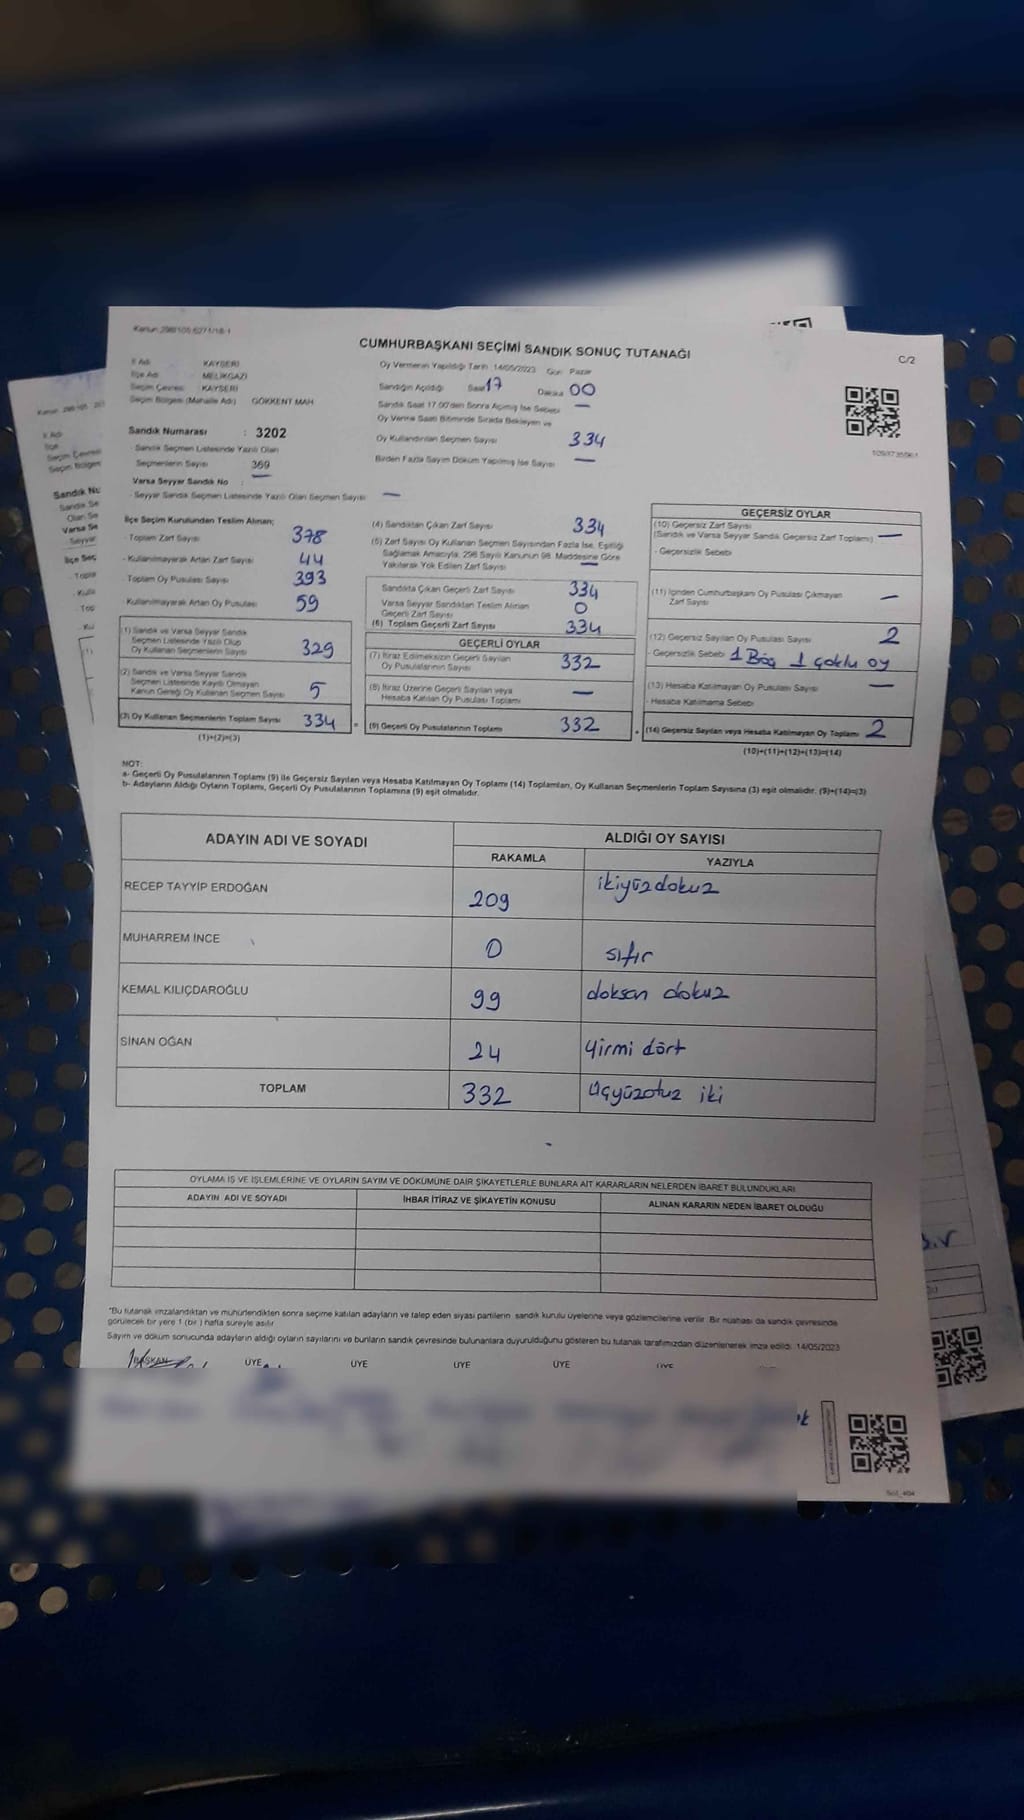 Kanun 298/105 6271/18-1
CUMHURBAŞKANI SEÇİMİ SANDIK SONUÇ TUTANAĞI
C/2
İl Adı : KAYSERİ
İlçe Adı : MELİKGAZİ
Seçim Çevresi : KAYSERİ
Seçim Bölgesi (Mahalle Adı) : GÖKKENT MAH.
Sandık Numarası : 3202
- Sandık Seçmen Listesinde Yazılı Olan
Seçmenlerin Sayısı 369
Varsa Seyyar Sandık No : —
- Seyyar Sandık Seçmen Listesinde Yazılı Olan Seçmen Sayısı —
Oy Vermenin Yapıldığı Tarih 14/05/2023 Gün Pazar
Sandığın Açıldığı Saat 17 Dakika 00
Sandık Saat 17.00'den Sonra Açılmış İse Sebebi —
Oy Verme Saati Bitiminde Sırada Bekleyen ve
Oy Kullandırılan Seçmen Sayısı 334
Birden Fazla Sayım Döküm Yapılmış İse Sayısı —
İlçe Seçim Kurulundan Teslim Alınan;
- Toplam Zarf Sayısı 378
- Kullanılmayarak Artan Zarf Sayısı 44
- Toplam Oy Pusulası Sayısı 393
- Kullanılmayarak Artan Oy Pusulası 59
(1) Sandık ve Varsa Seyyar Sandık
Seçmen Listesinde Yazılı Olup
Oy Kullanan Seçmenlerin Sayısı 329
(2) Sandık ve Varsa Seyyar Sandık
Seçmen Listesinde Kayıtlı Olmayan
Kanun Gereği Oy Kullanan Seçmen Sayısı 5
(3) Oy Kullanan Seçmenlerin Toplam Sayısı 334
(1)+(2)=(3)
(4) Sandıktan Çıkan Zarf Sayısı 334
(5) Zarf Sayısı Oy Kullanan Seçmen Sayısından Fazla İse, Eşitliği
Sağlamak Amacıyla, 298 Sayılı Kanunun 98. Maddesine Göre
Yakılarak Yok Edilen Zarf Sayısı —
Sandıkta Çıkan Geçerli Zarf Sayısı 334
Varsa Seyyar Sandıktan Teslim Alınan
Geçerli Zarf Sayısı 0
(6) Toplam Geçerli Zarf Sayısı 334
GEÇERLİ OYLAR
(7) İtiraz Edilmeksizin Geçerli Sayılan
Oy Pusulalarının Sayısı 332
(8) İtiraz Üzerine Geçerli Sayılan veya
Hesaba Katılan Oy Pusulası Toplamı —
(9) Geçerli Oy Pusulalarının Toplamı 332
GEÇERSİZ OYLAR
(10) Geçersiz Zarf Sayısı
(Sandık ve Varsa Seyyar Sandık Geçersiz Zarf Toplamı) —
- Geçersizlik Sebebi
(11) İçinden Cumhurbaşkanı Oy Pusulası Çıkmayan
Zarf Sayısı —
(12) Geçersiz Sayılan Oy Pusulası Sayısı 2
- Geçersizlik Sebebi 1 Boş 1 çoklu oy
(13) Hesaba Katılmayan Oy Pusulası Sayısı —
- Hesaba Katılmama Sebebi
(14) Geçersiz Sayılan veya Hesaba Katılmayan Oy Toplamı 2
(10)+(11)+(12)+(13)=(14)
NOT:
a- Geçerli Oy Pusulalarının Toplamı (9) ile Geçersiz Sayılan veya Hesaba Katılmayan Oy Toplamı (14) Toplamları, Oy Kullanan Seçmenlerin Toplam Sayısına (3) eşit olmalıdır. (9)+(14)=(3)
b- Adayların Aldığı Oyların Toplamı, Geçerli Oy Pusulalarının Toplamına (9) eşit olmalıdır.
ADAYIN ADI VE SOYADI ALDIĞI OY SAYISI
RAKAMLA YAZIYLA
RECEP TAYYİP ERDOĞAN 209 ikiyüzdokuz
MUHARREM İNCE 0 sıfır
KEMAL KILIÇDAROĞLU 99 doksan dokuz
SİNAN OĞAN 24 yirmi dört
TOPLAM 332 üçyüzotuz iki
OYLAMA İŞ VE İŞLEMLERİNE VE OYLARIN SAYIM VE DÖKÜMÜNE DAİR ŞİKAYETLERLE BUNLARA AİT KARARLARIN NELERDEN İBARET BULUNDUKLARI
ADAYIN ADI VE SOYADI İHBAR İTİRAZ VE ŞİKAYETİN KONUSU ALINAN KARARIN NEDEN İBARET OLDUĞU
*Bu tutanak imzalandıktan ve mühürlendikten sonra seçime katılan adayların ve talep eden siyasi partilerin sandık kurulu üyelerine veya gözlemcilerine verilir. Bir nüshası da sandık çevresinde
görülecek bir yere 1 (bir) hafta süreyle asılır
Sayım ve döküm sonucunda adayların aldığı oyların sayılarını ve bunların sandık çevresinde bulunanlara duyurulduğunu gösteren bu tutanak tarafımızdan düzenlenerek imza edildi. 14/05/2023
BAŞKAN ÜYE ÜYE ÜYE ÜYE ÜYE